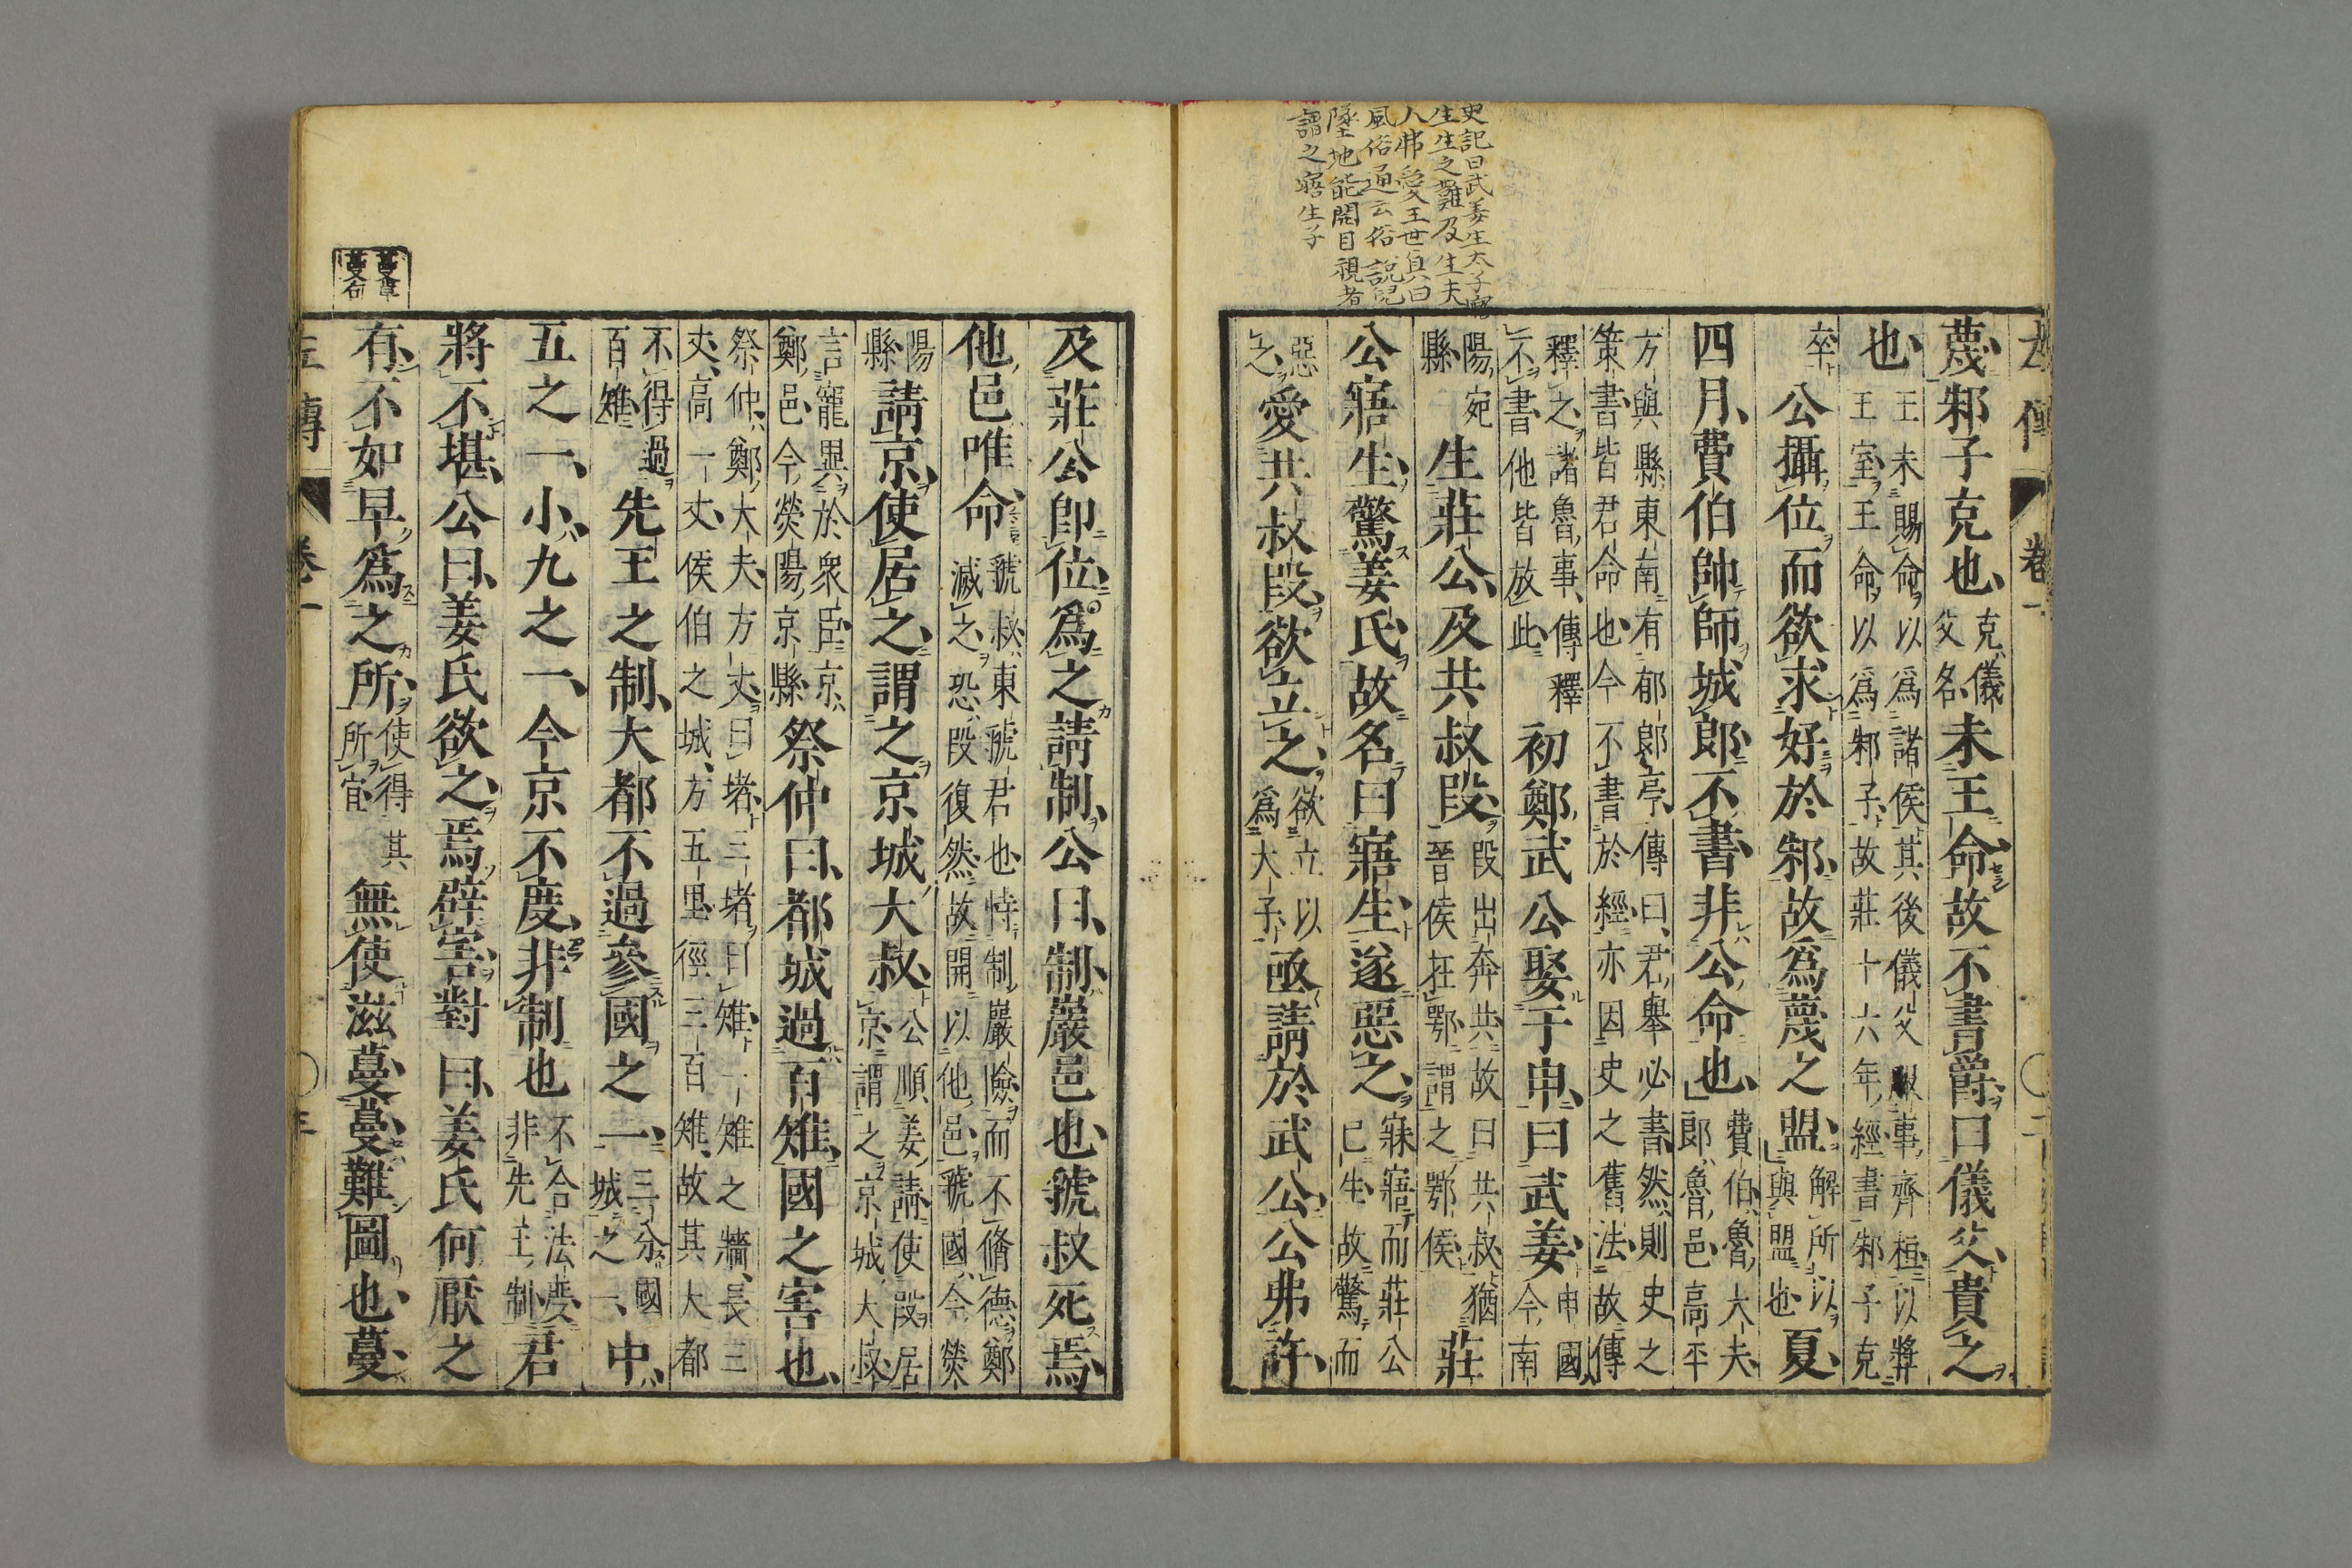 史記曰武姜生太子寤
生生之難及生夫
人弗愛王世貞曰
風俗通云俗說兒
墜地能開目視者
謂之寤生子
左傳 卷一 二
蔑邾子克也克儀父名未王命故不書爵曰儀父貴之
也王未賜命以爲諸侯其後儀父服事齊桓以奬王室王命以爲邾子故莊十六年經書邾子克
卒公攝位而欲求好於邾故爲蔑之盟解所以與盟也夏
四月費伯帥師城郎不書非公命也費伯魯大夫郎魯邑高平
方與縣東南有郁郎亭傳曰君舉必書然則史之策書皆君命也今不書於經亦因史之舊法故傳
釋之諸魯事傳釋不書他皆放此初鄭武公娶于申曰武姜申國今南
陽宛縣生莊公及共叔段段出奔共故曰共叔猶晉侯在鄂謂之鄂侯莊
公寤生驚姜氏故名曰寤生遂惡之寐寤而莊公已生故驚而
惡之愛共叔段欲立之欲立以爲大子亟請於武公公弗許
及莊公即位爲之請制公曰制巖邑也虢叔死焉
他邑唯命虢叔東虢君也恃制巖險而不脩德鄭滅之恐段復然故開以他邑虢國今熒
陽縣請京使居之謂之京城大叔公順姜請使段居京謂之京城大叔
言寵異於衆臣京鄭邑今熒陽京縣祭仲曰都城過百雉國之害也
祭仲鄭大夫方丈曰堵三堵曰雉一雉之牆長三丈高一丈侯伯之城方五里徑三百雉故其大都
不得過百雉先王之制大都不過參國之一三分國城之一中
五之一小九之一今京不度非制也不合法度非先王制君
將不堪公曰姜氏欲之焉辟害對曰姜氏何厭之
有不如早爲之所使得其所宜無使滋蔓蔓難圖也蔓
左傳 卷一 三